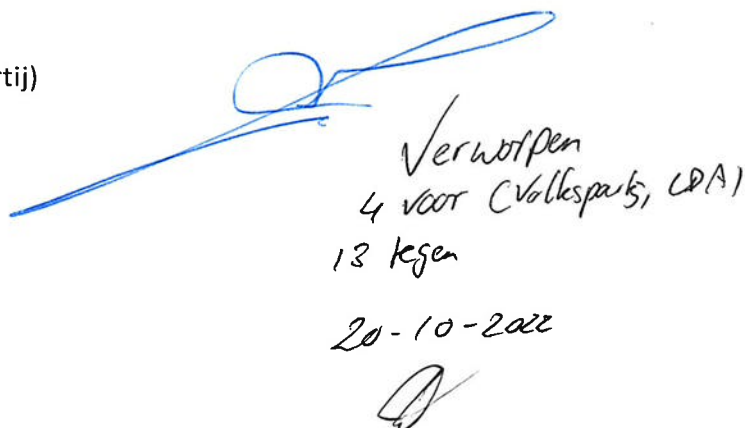 tij)
Verworpen
4 voor (Volkspartij, CDA)
13 tegen
20-10-2022